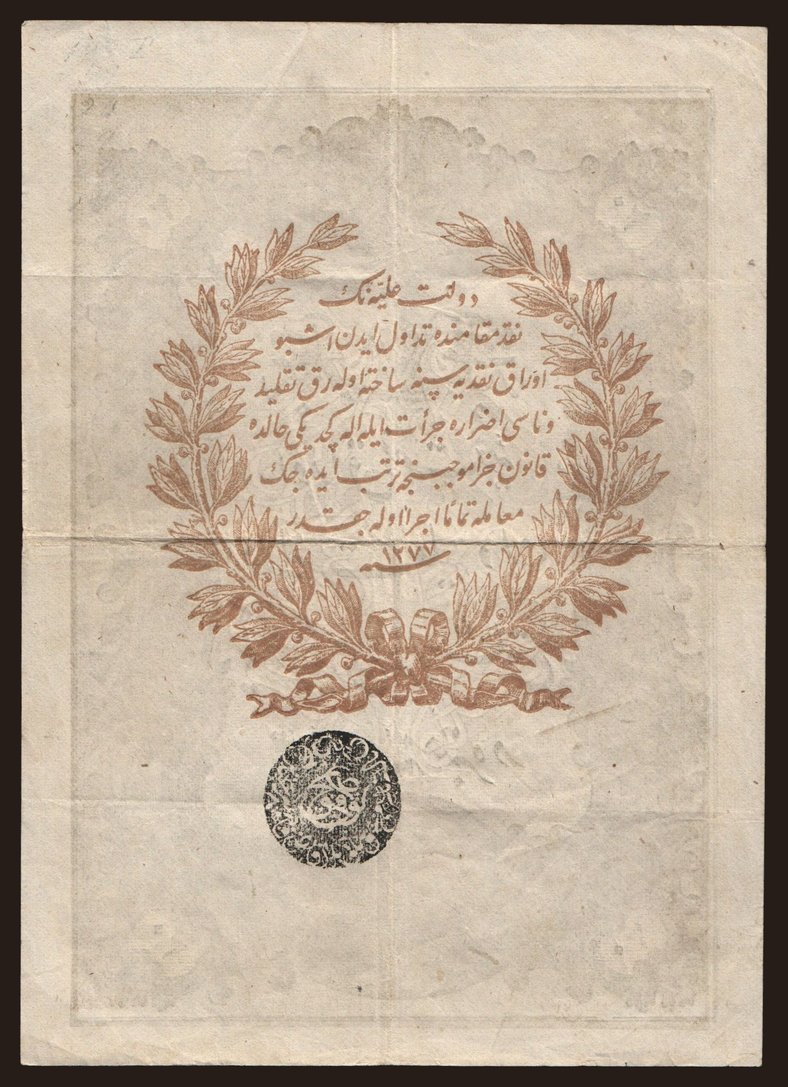 دولت علیّه نك
نقد مقامنده تداول ایدن اشبو
اوراق نقدیه سنه ساخته اوله رق تقلید
وناسی اضراره جرأت ایله اله كچدیكی حالده
قانون جزا موجبنجه ترتب ایده جك
معامله تمامًا اجرا اوله جقدر
سنه ١٢٧٧